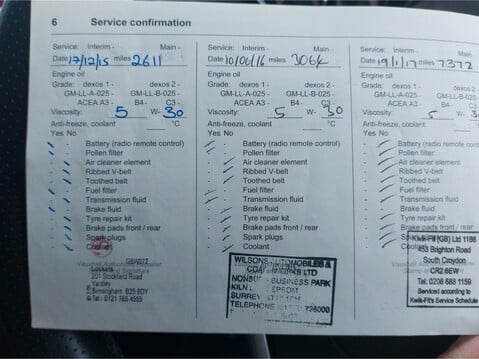 6 Service confirmation
Service: Interim - Main -
Date 17/12/15 miles 2611
Engine oil
Grade: dexos 1 - dexos 2 -
GM-LL-A-025 - GM-LL-B-025 -
ACEA A3 - B4- C3 -
Viscosity: 5 W- 30
Anti-freeze, coolant °C
Yes No
Battery (radio remote control)
Pollen filter
Air cleaner element
Ribbed V-belt
Toothed belt
Fuel filter
Transmission fluid
Brake fluid
Tyre repair kit
Brake pads front / rear
Spark plugs
Coolant
Lookers
201 Stockfield Road
Yardley
Birmingham B25
Tel: 0121
Service: Interim - Main -
Date 10/06/16 miles
Engine oil
Grade: dexos 1 - dexos 2 -
GM-LL-A-025 - GM-LL-B-025 -
ACEA A3 - B4- C3 -
Viscosity: 5 W- 30
Anti-freeze, coolant °C
Yes No
Battery (radio remote control)
Pollen filter
Air cleaner element
Ribbed V-belt
Toothed belt
Fuel filter
Transmission fluid
Brake fluid
Tyre repair kit
Brake pads front / rear
Spark plugs
Coolant
WILSONS AUTOMOBILES &
LTD
BUSINESS PARK
KILN EPSOM
SURREY
TELEPHONE
Service: Interim - Main -
Date 19/1/17 miles 7372
Engine oil
Grade: dexos 1 - dexos 2 -
GM-LL-A-025 - GM-LL-B-025 -
ACEA A3 - B4- C3 -
Viscosity: 5 W-
Anti-freeze, coolant °C
Yes No
Battery (radio remote control)
Pollen filter
Air cleaner element
Ribbed V-belt
Toothed belt
Fuel filter
Transmission fluid
Brake fluid
Tyre repair kit
Brake pads front / rear
Spark plugs
Kwik-Fit (GB) Ltd 1186
453 Brighton Road
South Croydon
CR2 6EW
Tel: 0208 688 1159
Serviced according to
Kwik-Fit's Service Schedule